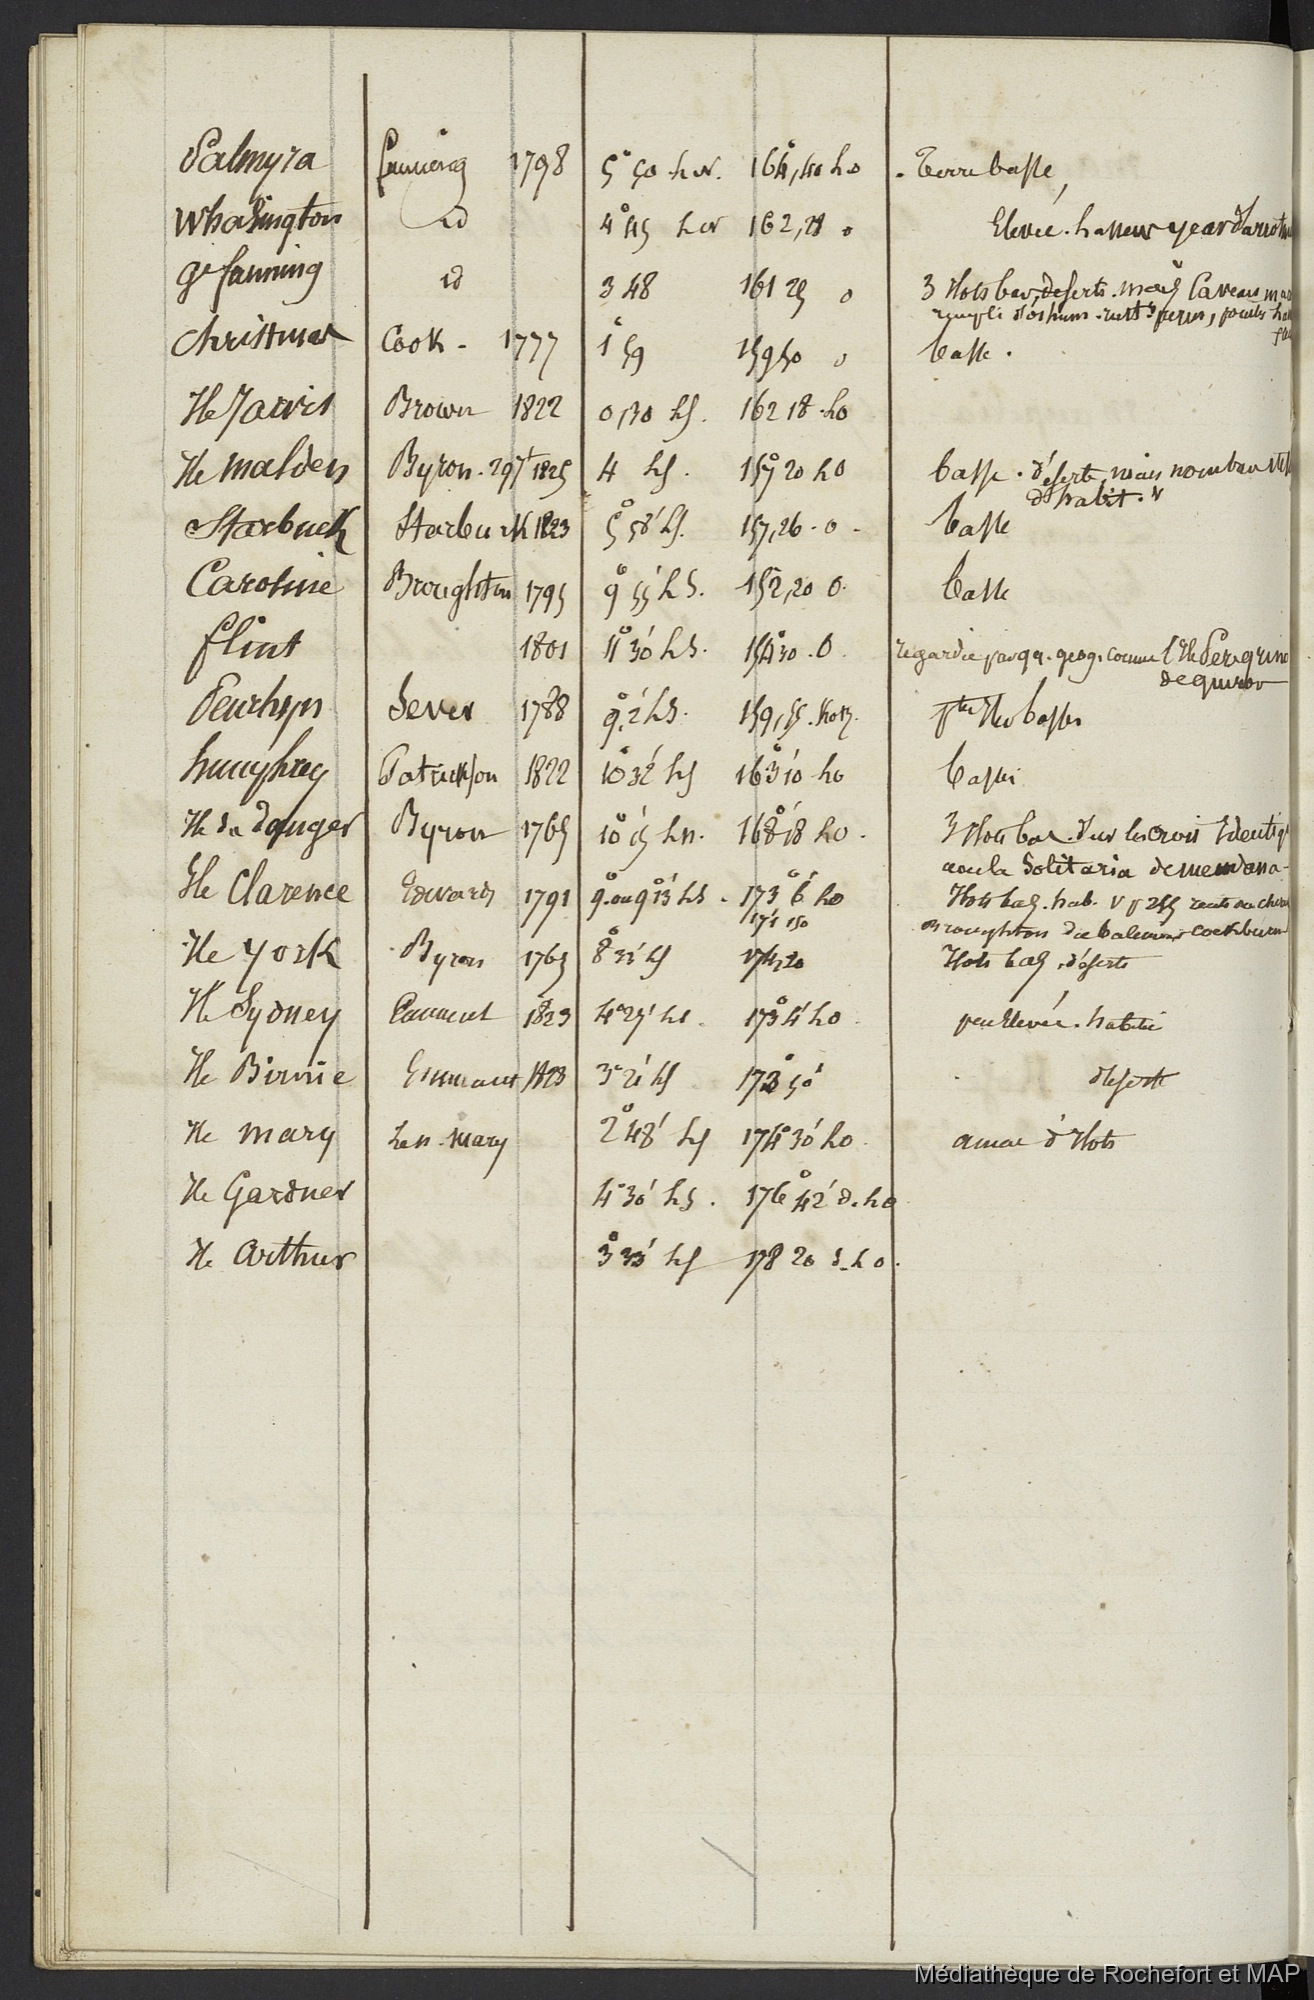 Palmyra Fanning 1798 5° 50 l. N. 164°, 40 l. o Terre basse,
Whasington id 4° 45 l. N 162, 28 o Elevée. la new year d'arrots
Ge fanning id 3 48 161 25 o 3 Ilots bas, deserts. mais
rempli
christmas Cook - 1777 1° 59 159 50 o basse.
Ile Jarvis Brown 1822 0,30 l S. 162 18 l. o
Ile malden Byron. 29 Jt 1825 4 l S. 157° 20 l O basse. déserte, mais
d'habit.
Starbuck Starbuck 1823 5° 58' l S. 157, 26 - o - basse
Caroline Broughton 1795 9° 55' l. S. 152, 20 O. basse
flint 1801 11° 30' l. S. 154° 30. O. regardée par qq. geog. comme l'Ile Peregrino
de quiros
Penrhyn Sever 1788 9° 2' l. S. 159, 55. Kotz. ptes Iles basses
humphrey Patrickson 1822 10° 32' l S 163° 10 l. o basse
Ile du danger Byron 1765 10° 15 l. n. 168° 18' l. O. 3 Ilots bas. Sur les croit Identiq
avec la Solitaria de mendana
Ile Clarence Edwards 1791 9. ou 9° 13' l. S. 173° 6' l. o Ilots bas. hab.
171 150 Broughton
Ile york Byron 1765 8° 32' l S 174, 20 Ilots bas, déserts
Ile Sydney Emment 1823 4° 27' l. S. 173° 4' l. o peu Elevée. habitée
Ile Birnie Emmant 1823 3° 21' l S 173° 50' deserte
Ile mary Len. mary 2° 48' l S 174° 30' l. o. amas d'Ilots
Ile Gardner 4° 30' l. S. 176° 42' d. l. o
Ile arthur 3° 33' l S 178 20 d. l. o.
Médiathèque de Rochefort et MAP